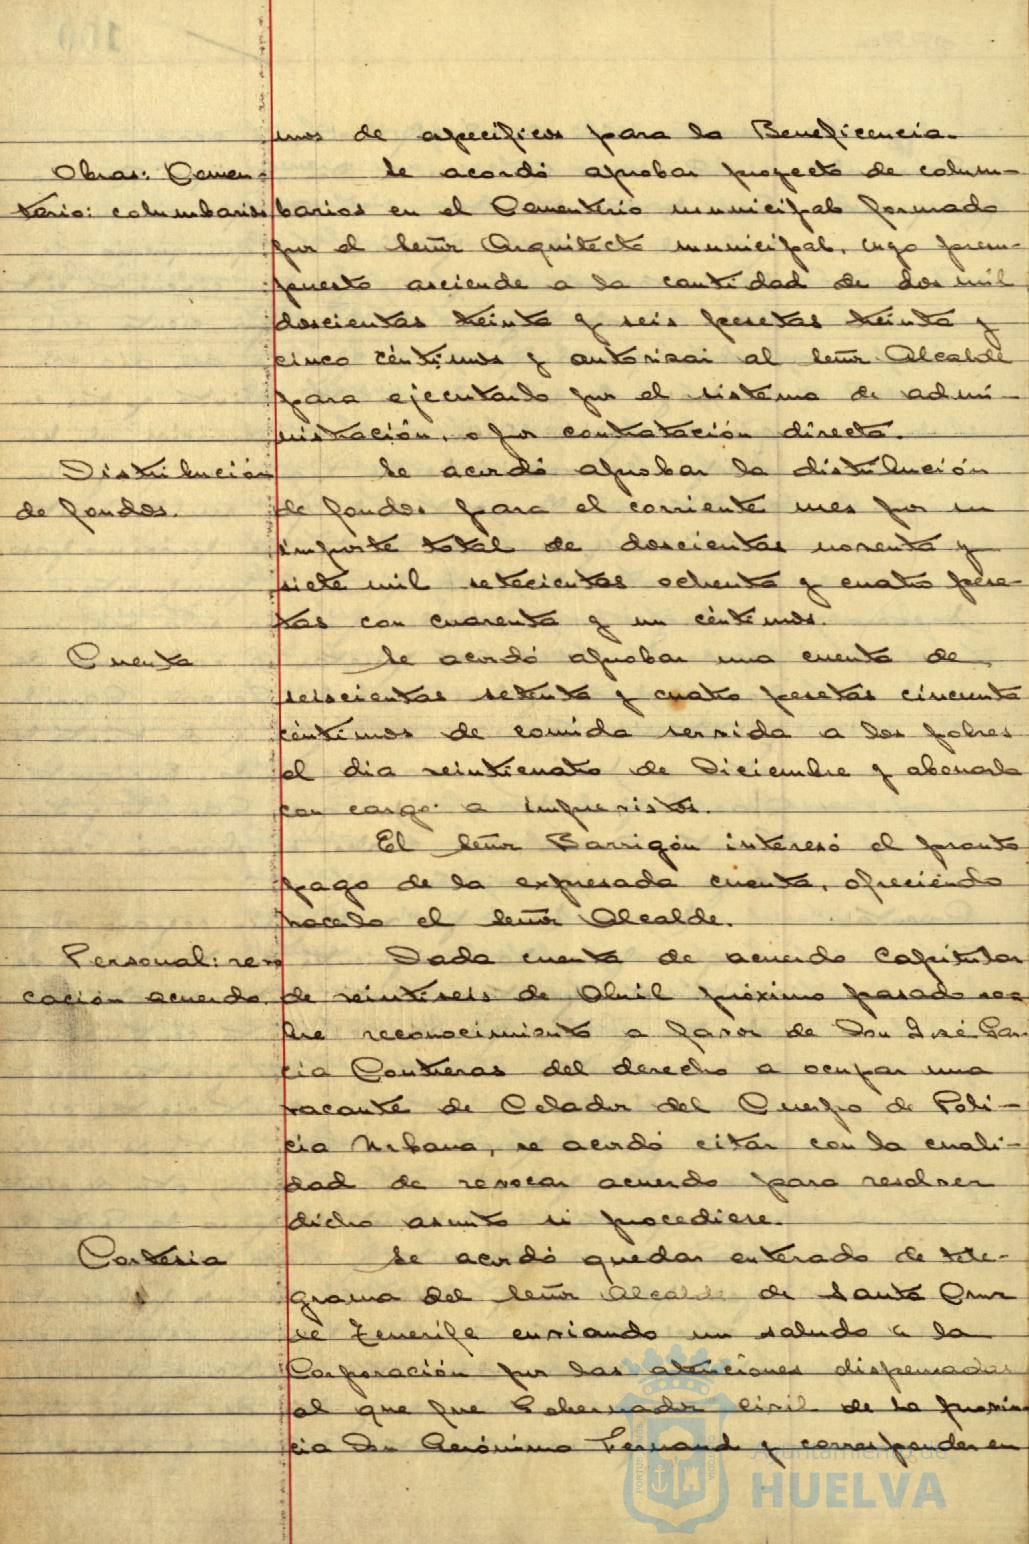 mos de específicos para la Beneficencia.
Obras: Cemen-
terio: columbarios
Se acordó aprobar proyecto de colum-
barios en el Cementerio municipal formado
por el Señor Arquitecto municipal, cuyo presu-
puesto asciende a la cantidad de dos mil
doscientas treinta y seis pesetas treinta y
cinco céntimos y autorizar al Señor Alcalde
para ejecutarlo por el sistema de admi-
nistración, o por contratación directa.
Distribución
de fondos.
Se acordó aprobar la distribución
de fondos para el corriente mes por un
importe total de doscientas noventa y
siete mil setecientas ochenta y cuatro pese-
tas con cuarenta y un céntimos.
Cuenta
Se acordó aprobar una cuenta de
seiscientas setenta y cuatro pesetas cincuenta
céntimos de comida servida a los pobres
el dia veinticuatro de Diciembre y abonarla
con cargo a imprevistos.
El Señor Barrigón interesó el pronto
pago de la expresada cuenta, ofreciendo
hacerlo el Señor Alcalde.
Personal: revo
cación acuerdo.
Dada cuenta de acuerdo Capitular
de veintiseis de Abril próximo pasado so
bre reconocimiento a favor de Don José Gar-
cia Contreras del derecho a ocupar una
vacante de Celador del Cuerpo de Poli-
cia Urbana, se acordó citar con la cuali-
dad de revocar acuerdo para resolver
dicho asunto si procediere.
Cortesia
Se acordó quedar enterado de tele-
grama del Señor Alcalde de Santa Cruz
de Tenerife enviando un saludo a la
Corporación por las atenciones dispensadas
al que fue Gobernador Civil de la provin
cia Don Gerónimo Fernaud y corresponder en
Ayuntamiento de
HUELVA